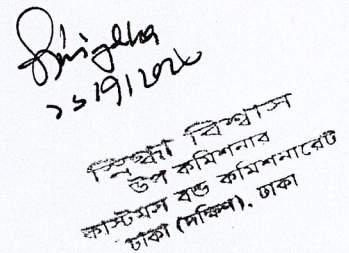 ২১/৭/২০২৫
স্নিগ্ধা বিশ্বাস
উপ কমিশনার
কাস্টমস বন্ড কমিশনারেট
ঢাকা (দক্ষিণ), ঢাকা